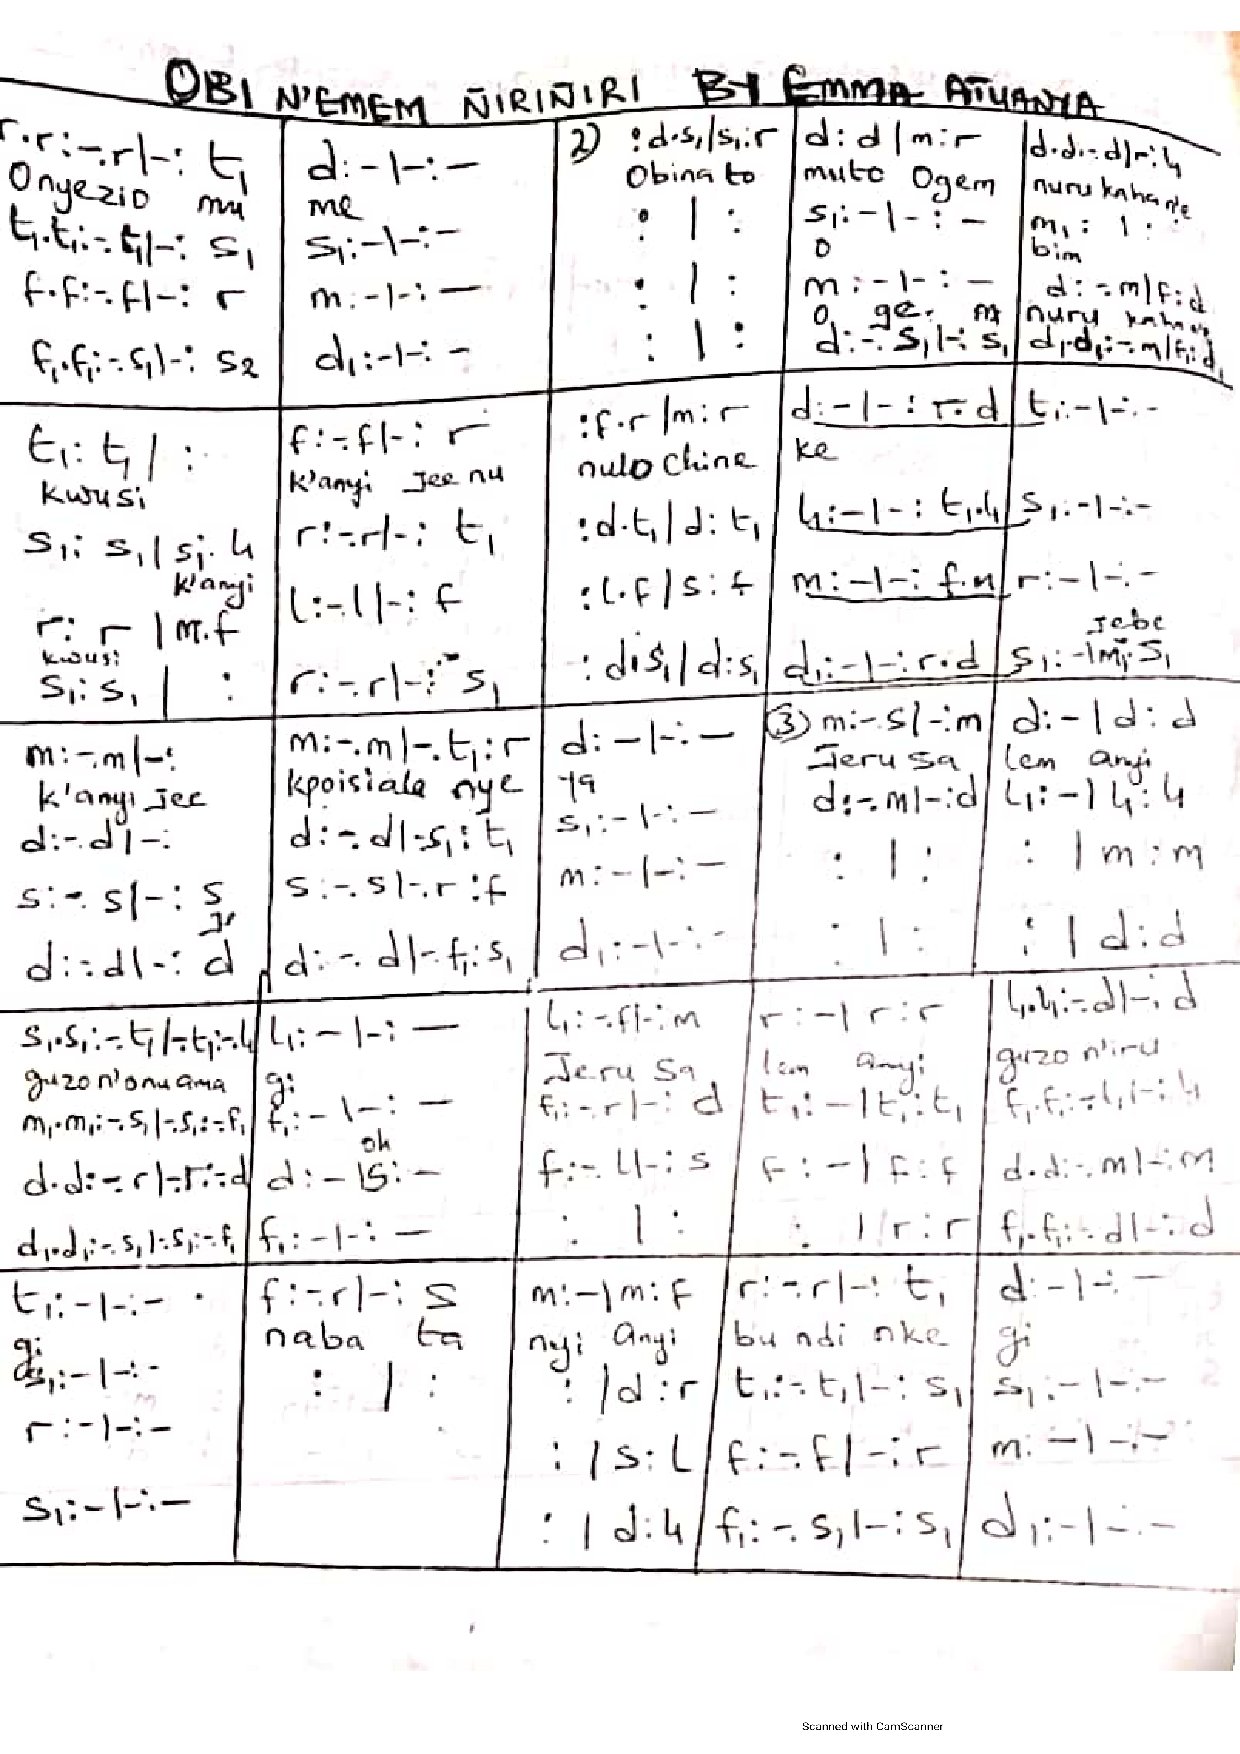 OBI N'EMEM ÑIRIÑIRI BY EMMA ATUANYA
r.r:-.r|-: t₁
Onyezio mu
t₁.t₁:-.t₁|-: s₁
f.f:-.f|-: r
f₁.f₁:-.s₁|-: s₂
d:-|-:-
me
s₁:-|-:-
m:-|-:-
d₁:-|-:-
2) :d.s₁|s₁:r
Obina to
: | :
: | :
: | :
d:d|m:r
muto Ogem
s₁:-|-:-
o
m:-|-:-
o ge. m
d:-.s₁|-:s₁
d.d:-.d|r:l₁
nuru kaha ne
m₁: | :
bim
d:-.m|f:d
nuru
d₁.d₁:-.m|f₁:d₁
t₁:t₁| :
kwusi
s₁:s₁|s₁.l₁
k'anyi
r:r|m.f
kwusi
s₁:s₁| :
f:-.f|-:r
k'anyi Jee nu
r:-.r|-:t₁
l:-.l|-:f
r:-.r|-:s₁
:f.r|m:r
nulo Chine
:d.t₁|d:t₁
:l.f|s:f
:d.s₁|d:s₁
d:-|-:r.d
ke
l₁:-|-:t₁.l₁
m:-|-:f.m
d₁:-|-:r.d
t₁:-|-:-
s₁:-|-:-
r:-|-:-
Jebe
s₁:-|m₁:s₁
m:-.m|-:
k'anyi Jee
d:-.d|-:
s:-.s|-:s
Je
d:-.d|-:d
m:-.m|-.t₁:r
kpoisiala nye
d:-.d|-.s₁:t₁
s:-.s|-.r:f
d:-.d|-.f₁:s₁
d:-|-:-
ya
s₁:-|-:-
m:-|-:-
d₁:-|-:-
③ m:-.s|-:m
Jeru sa
d:-.m|-:d
: | :
: | :
d:-|d:d
lem anyi
l₁:-|l₁:l₁
: |m:m
: |d:d
s₁.s₁:-.t₁|-.t₁:-.l₁
guzo n'onu ama
m₁.m₁:-.s₁|-.s₁:-.f₁
d.d:-.r|-.r:-.d
d₁.d₁:-.s₁|-.s₁:-.f₁
l₁:-|-:-
gi
f₁:-|-:-
oh
d:-|s:-
f₁:-|-:-
l₁:-.f|-:m
Jeru sa
f₁:-.r|-:d
f:-.l|-:s
: | :
r:-|r:r
lem anyi
t₁:-|t₁:t₁
f:-|f:f
: |r:r
l₁.l₁:-.d|-:d
guzo n'iru
f₁.f₁:-.l₁|-:l₁
d.d:-.m|-:m
f₁.f₁:-.d|-:d
t₁:-|-:-
gi
s₁:-|-:-
r:-|-:-
s₁:-|-:-
f:-.r|-:s
naba ta
: | :
m:-|m:f
nyi anyi
: |d:r
: |s:l
: |d:l₁
r:-.r|-:t₁
bu ndi nke
t₁:-.t₁|-:s₁
f:-.f|-:r
f₁:-.s₁|-:s₁
d:-|-:-
gi
s₁:-|-:-
m:-|-:-
d₁:-|-:-
Scanned with CamScanner